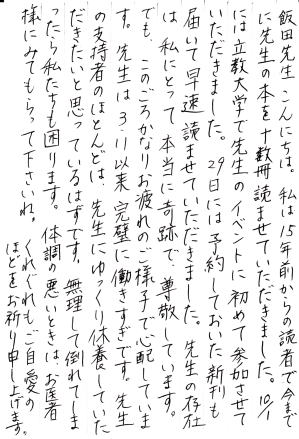 飯田先生、こんにちは。私は15年前からの読者で今まで
に先生の本を十数冊読ませていただきました。10/1
には立教大学で先生のイベントに初めて参加させて
いただきました。29日には予約しておいた新刊も
届いて早速読ませていただきました。先生の存在
は、私にとって本当に奇跡で、尊敬しています。
でも、このごろかなりお疲れのご様子で心配していま
す。先生は3.11以来、完璧に働きすぎです。先生
の支持者のほとんどは、先生にゆっくり休養していた
だきたいと思っているはずです。無理して倒れてしま
ったら私たちも困ります。体調の悪いときは、お医者
様にみてもらって下さいね。くれぐれもご自愛の
ほどをお祈り申し上げます。